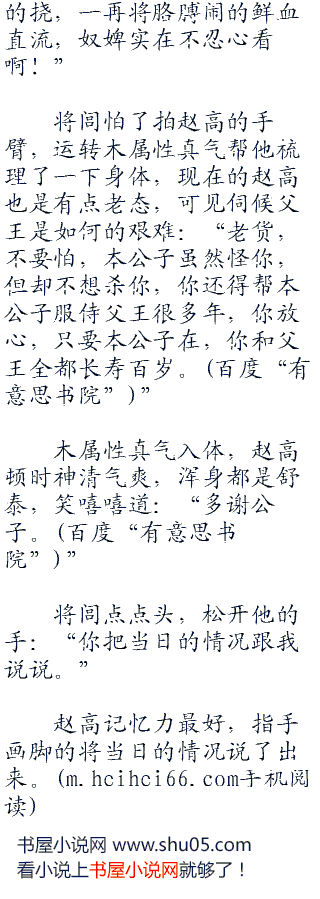 的挠，一再将胳膊闹的鲜血
直流，奴婢实在不忍心看
啊！”
将闾怕了拍赵高的手
臂，运转木属性真气帮他梳
理了一下身体，现在的赵高
也是有点老态，可见伺候父
王是如何的艰难：“老货，
不要怕，本公子虽然怪你，
但却不想杀你，你还得帮本
公子服侍父王很多年，你放
心，只要本公子在，你和父
王全都长寿百岁。(百度“有
意思书院”)”
木属性真气入体，赵高
顿时神清气爽，浑身都是舒
泰，笑嘻嘻道：“多谢公
子。(百度“有意思书
院”)”
将闾点点头，松开他的
手：“你把当日的情况跟我
说说。”
赵高记忆力最好，指手
画脚的将当日的情况说了出
来。(m.heihei66.com手机阅
读)
书屋小说网 www.shu05.com
看小说上书屋小说网就够了！